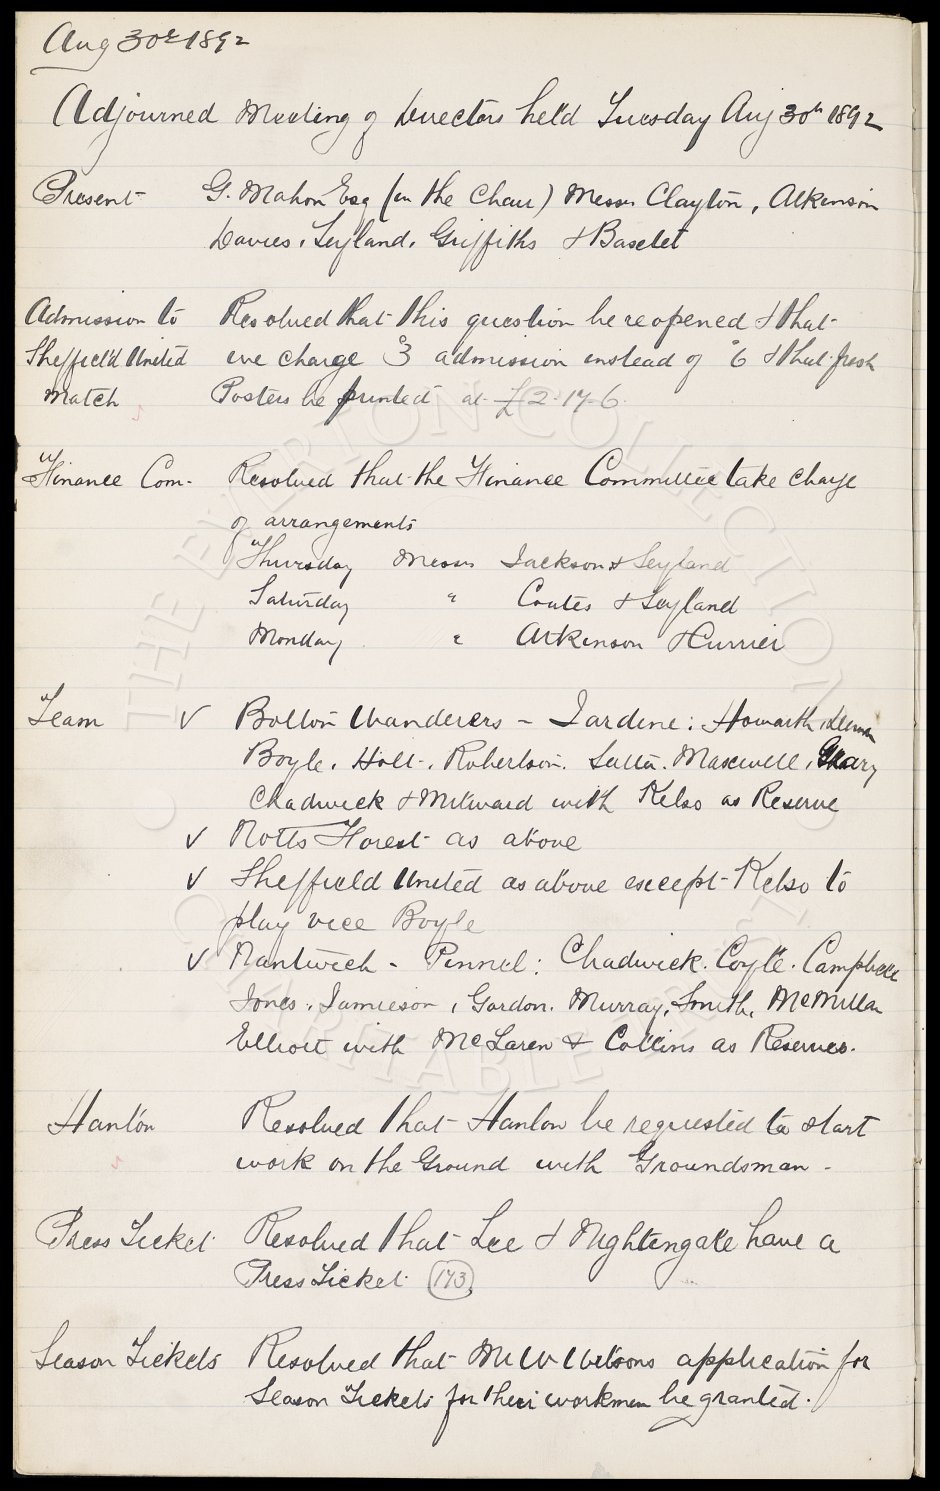 Aug 30th 1892
Adjourned Meeting of Directors held Tuesday Aug 30th 1892
Present G. Mahon Esq (in the Chair) Messrs Clayton, Atkinson
Davies, Leyland, Griffiths & Baxter
Admission to Resolved that this question be reopened & that
Sheffield United we charge 3d admission instead of 6 & that fresh
Match Posters be printed at £2-17-6.
Finance Com. Resolved that the Finance Committee take charge
of arrangements
Thursday Messrs Jackson & Leyland
Saturday " Coates & Leyland
Monday " Atkinson & Currier
Team ✓ Bolton Wanderers - Jardine: Howarth,
Boyle, Holt, Robertson. Latta. Maxwell, Geary
Chadwick & Milward with Kelso as Reserve
✓ Notts Forest as above
✓ Sheffield United as above except Kelso to
play vice Boyle
✓ Nantwich - Pinnel: Chadwick. Coyle. Campbell
Jones. Jamieson, Gordon. Murray, Smith, McMillan
Elliott with McLaren & Collins as Reserves.
Hanlon Resolved that Hanlon be requested to start
work on the Ground with Groundsman -
Press Ticket Resolved that Lee & Nightengale have a
Press Ticket. 173
Season Tickets Resolved that Mr W Wilsons application for
Season Tickets for their workmen be granted.
THE EVERTON COLLECTION
CHARITABLE TRUST